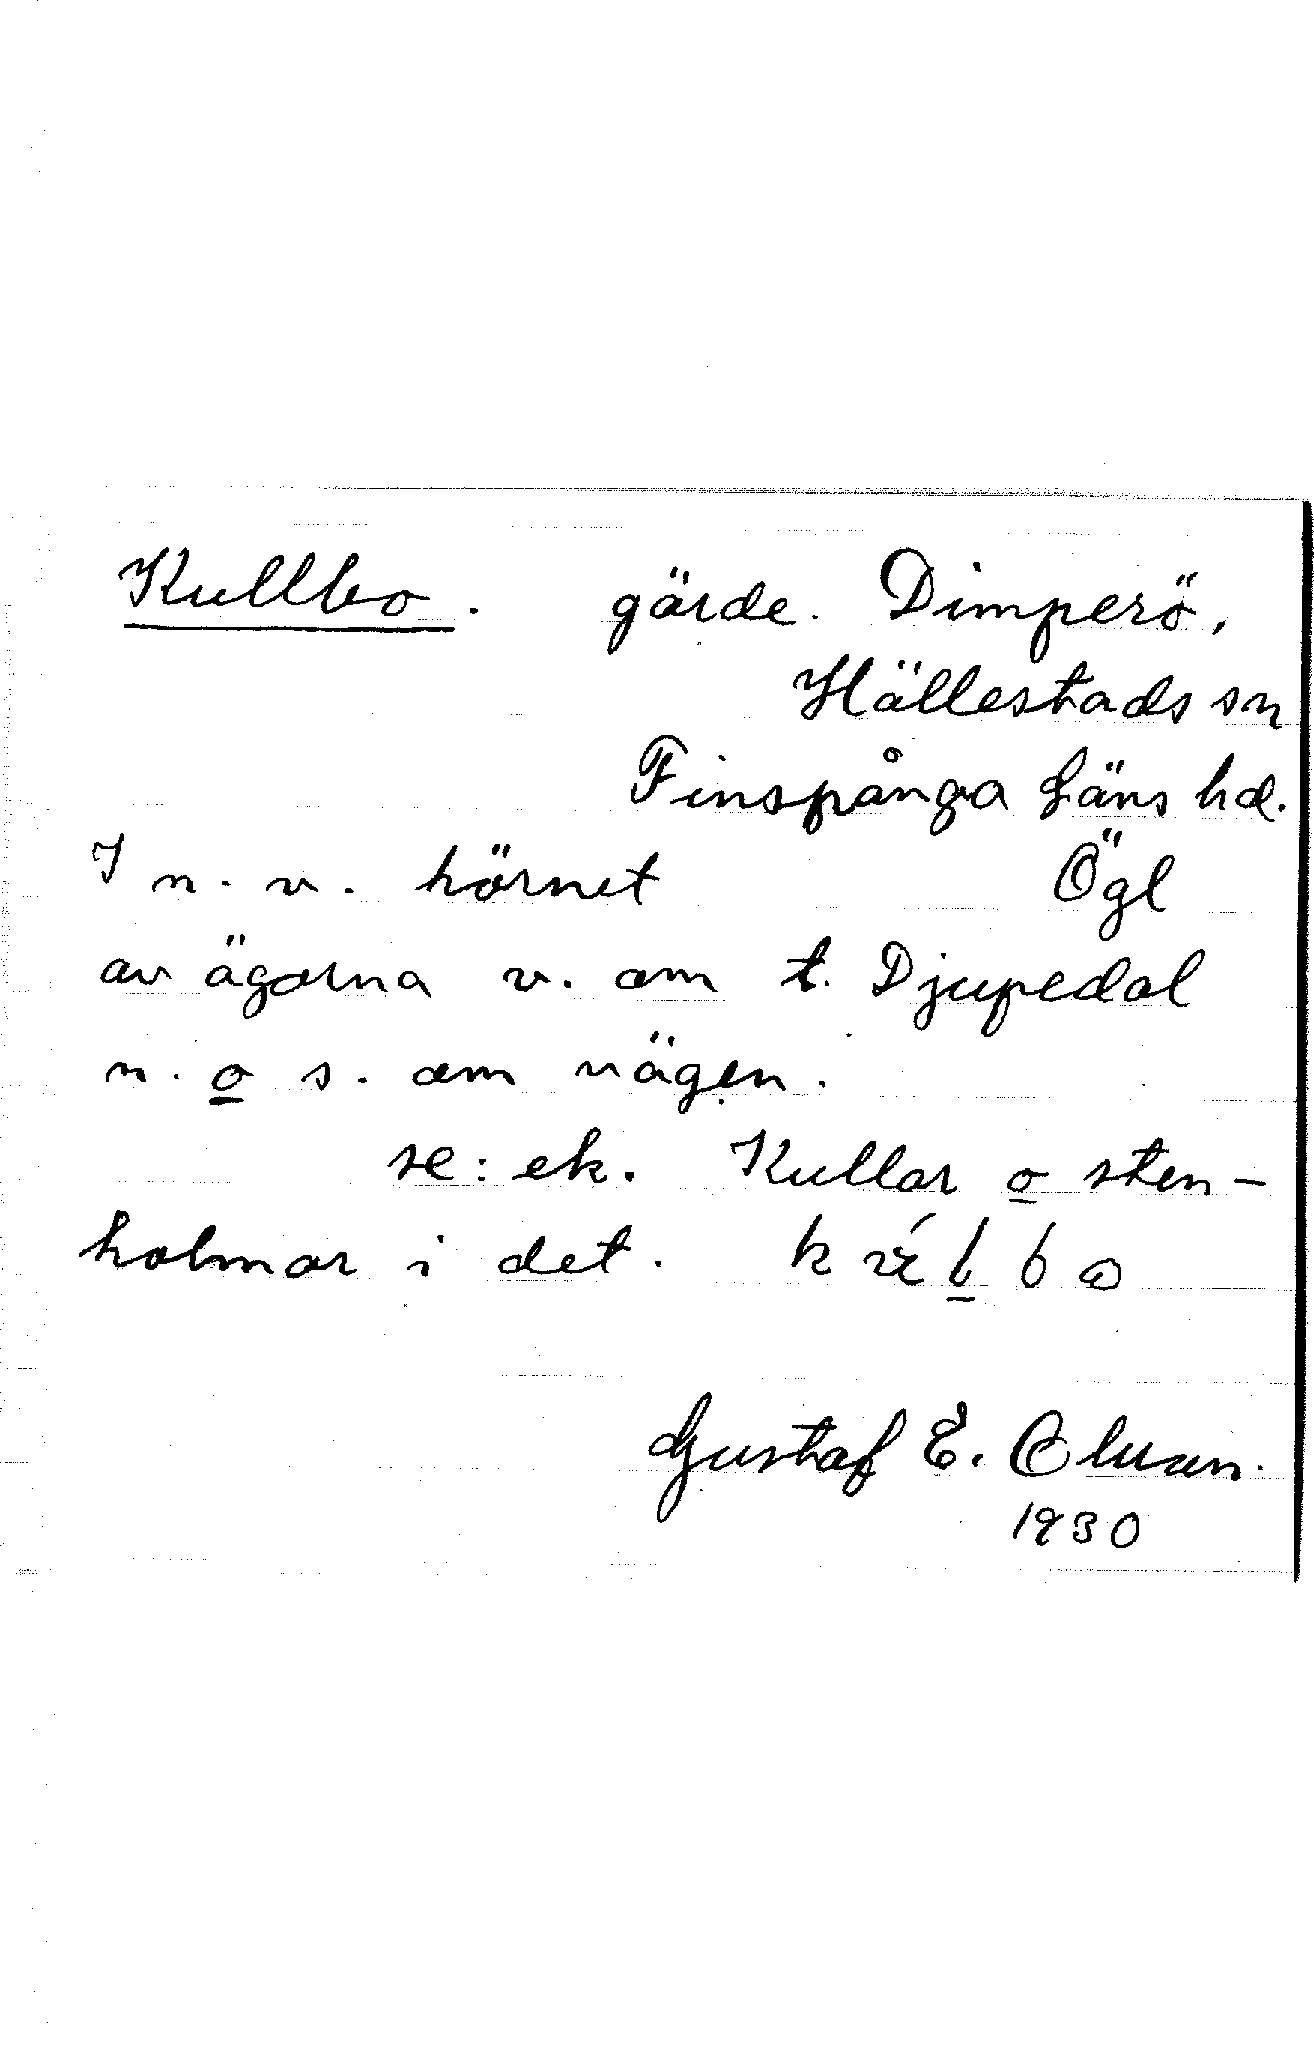 Kullbo. gärde. Dimperö,
Hällestads sn
Finspånga Läns hd.
I n. v. hörnet Ögl
av ägorna v. om t. Djupedal
n. o s. om vägen.
se: ek. Kullar o sten-
holmar i det.
Gustaf E.
1930